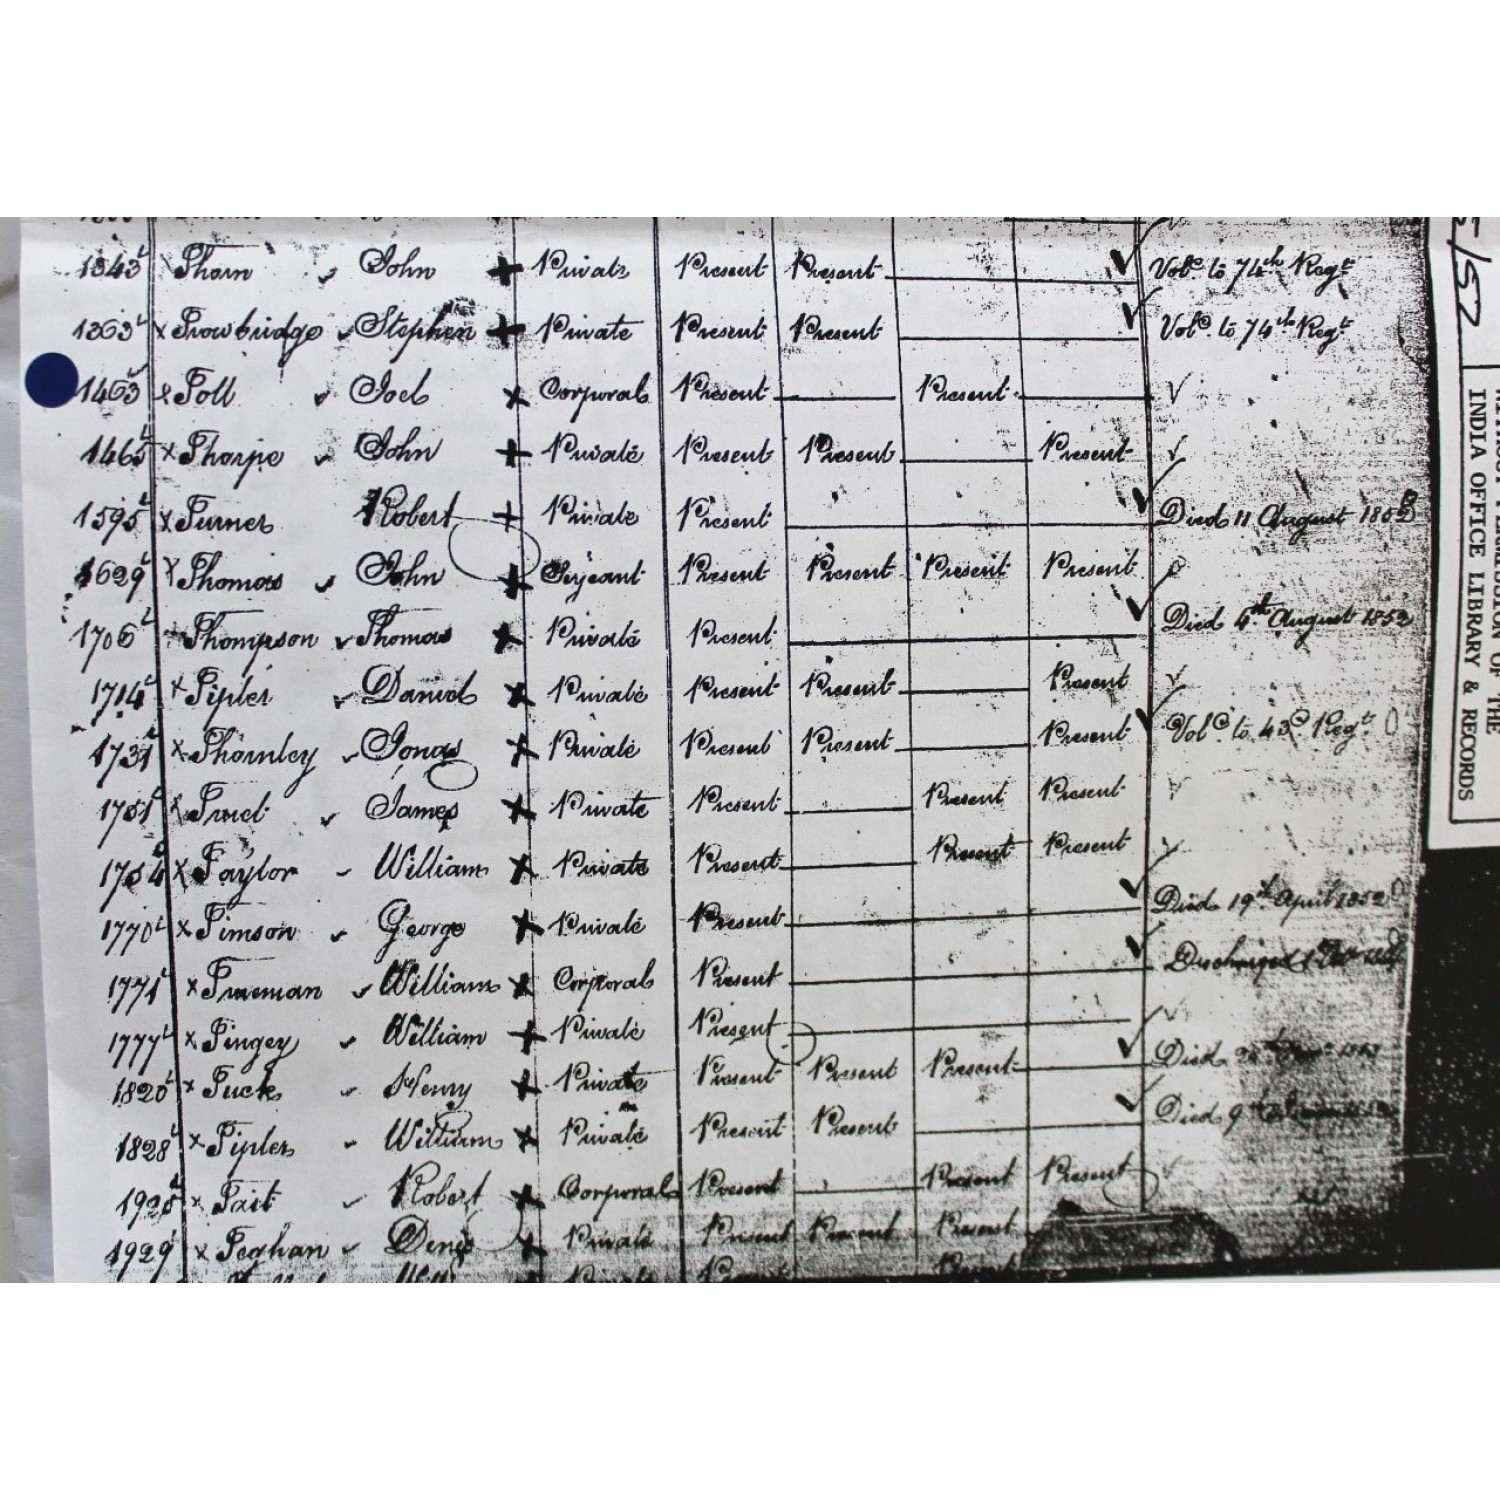 1343 × Thorn John Private Present Present Vol^d. to 74th Reg^t
1363 × Trowbridge Stephen Private Present Present Vol^d. to 74th Reg^t
1463 × Toll Joel Corporal Present Present
1465 × Tharpe John Private Present Present Present
1595 × Turner Robert Private Present Died 11 August 185
1629 × Thomas John Serjeant Present Present Present Present
1706 Thompson Thomas Private Present Died August 1852
1714 × Tipler Daniel Private Present Present Present
1731 × Thornley Jonas Private Present Present Present Vol^d. to 43^d Reg^t
1751 × James Private Present Present Present
1754 × Taylor William Private Present Present Present
1770 × Timson George Private Present Died 19th April 1852
1771 × Trueman William Corporal Present Discharged
1777 × Tingey William Private Present
1820 × Tuck Henry Private Present Present Present Died
1828 × Tipler William Private Present Present Died 9th
1925 × Tait Robert Corporal Present Present Present
1929 × Teghan Denis Private Present Present Present
PERMISSION OF THE
INDIA OFFICE LIBRARY & RECORDS
/52